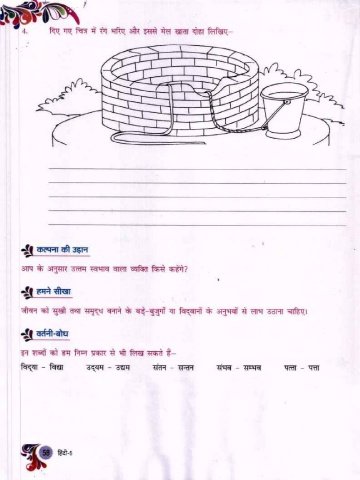 4. दिए गए चित्र में रंग भरिए और इससे मेल खाता दोहा लिखिए–
कल्पना की उड़ान
आप के अनुसार उत्तम स्वभाव वाला व्यक्ति किसे कहेंगे?
हमने सीखा
जीवन को सुखी तथा समृद्ध बनाने के बड़े-बुजुर्गों या विद्वानों के अनुभवों से लाभ उठाना चाहिए।
वर्तनी-बोध
इन शब्दों को हम निम्न प्रकार से भी लिख सकते हैं–
विद्‌या – विद्या उद्‌यम – उद्यम संतन – सन्तन संभव – सम्भव पत्‍ता – पत्ता
58 हिंदी-5